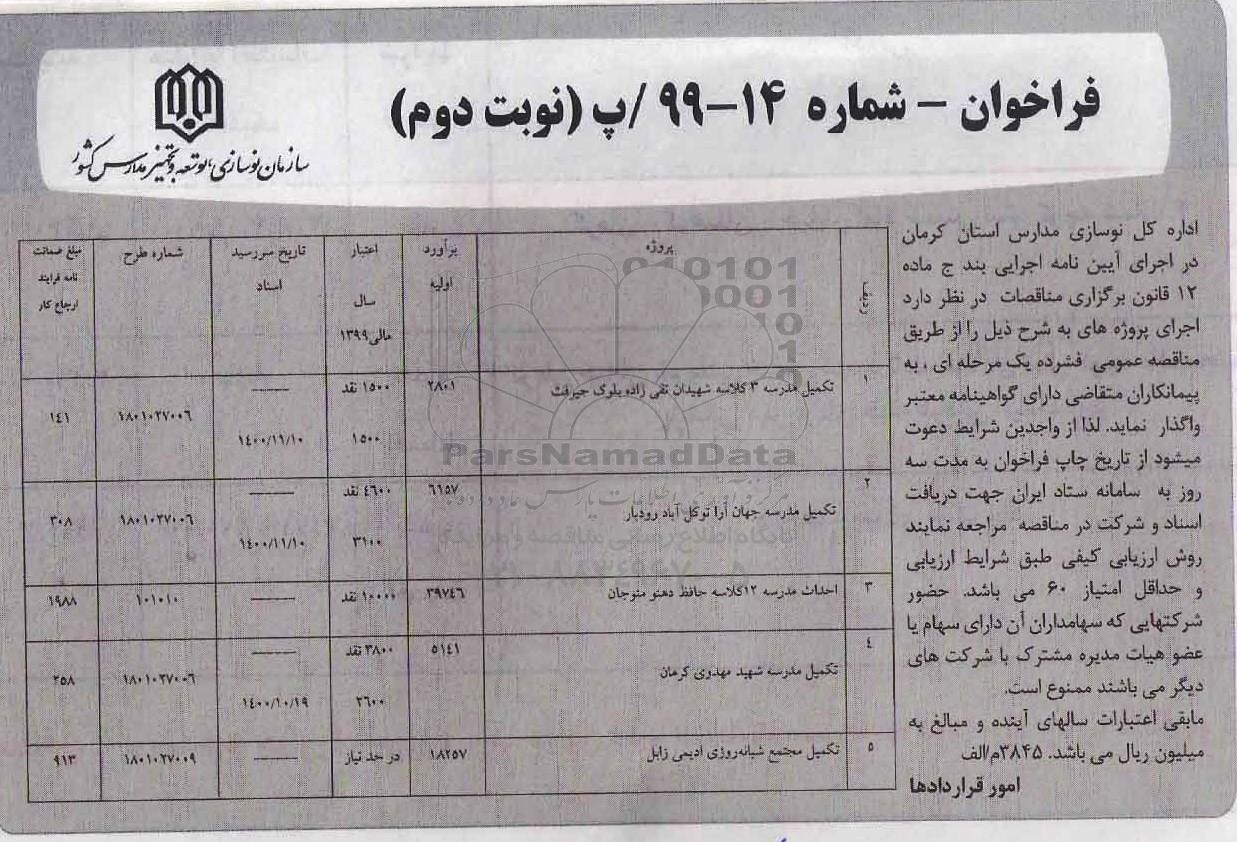 فراخوان - شماره ۱۴-۹۹ /پ (نوبت دوم)
سازمان نوسازی، توسعه و تجهیز مدارس کشور
اداره کل نوسازی مدارس استان کرمان
در اجرای آیین نامه اجرایی بند ج ماده
۱۲ قانون برگزاری مناقصات در نظر دارد
اجرای پروژه های به شرح ذیل را از طریق
مناقصه عمومی فشرده یک مرحله ای ، به
پیمانکاران متقاضی دارای گواهینامه معتبر
واگذار نماید. لذا از واجدین شرایط دعوت
میشود از تاریخ چاپ فراخوان به مدت سه
روز به سامانه ستاد ایران جهت دریافت
اسناد و شرکت در مناقصه مراجعه نمایند
روش ارزیابی کیفی طبق شرایط ارزیابی
و حداقل امتیاز ۶۰ می باشد. حضور
شرکتهایی که سهامداران آن دارای سهام یا
عضو هیات مدیره مشترک با شرکت های
دیگر می باشند ممنوع است.
مابقی اعتبارات سالهای آینده و مبالغ به
میلیون ریال می باشد. ۳۸۴۵م/الف
امور قراردادها
ردیف پروژه برآورد اولیه اعتبار سال مالی ۱۳۹۹ تاریخ سررسید اسناد شماره طرح مبلغ ضمانت نامه فرایند ارجاع کار
۱ تکمیل مدرسه ۳ کلاسه شهیدان تقی زاده بلوک جیرفت ۲۸۰۱ ۱۵۰۰ نقد ۱۵۰۰ ——— ۱۴۰۰/۱۱/۱۰ ۱۸۰۱۰۲۷۰۰۶ ۱۴۱
۲ تکمیل مدرسه جهان آرا توکل آباد رودبار ۶۱۵۷ ۴۶۰۰ نقد ۳۱۰۰ ——— ۱۴۰۰/۱۱/۱۰ ۱۸۰۱۰۲۷۰۰۶ ۳۰۸
۳ احداث مدرسه ۱۲کلاسه حافظ دهنو منوجان ۳۹۷۴۶ ۱۰۰۰۰ نقد ——— ۱۰۱۰۱۰ ۱۹۸۸
۴ تکمیل مدرسه شهید مهدوی کرمان ۵۱۴۱ ۳۸۰۰ نقد ۲۶۰۰ ——— ۱۴۰۰/۱۰/۱۹ ۱۸۰۱۰۲۷۰۰۶ ۲۵۸
۵ تکمیل مجتمع شبانه‌روزی ادیمی زابل ۱۸۲۵۷ در حد نیاز ——— ۱۸۰۱۰۲۷۰۰۹ ۹۱۳
ParsNamadData
پایگاه اطلاع رسانی مناقصه و مزایده